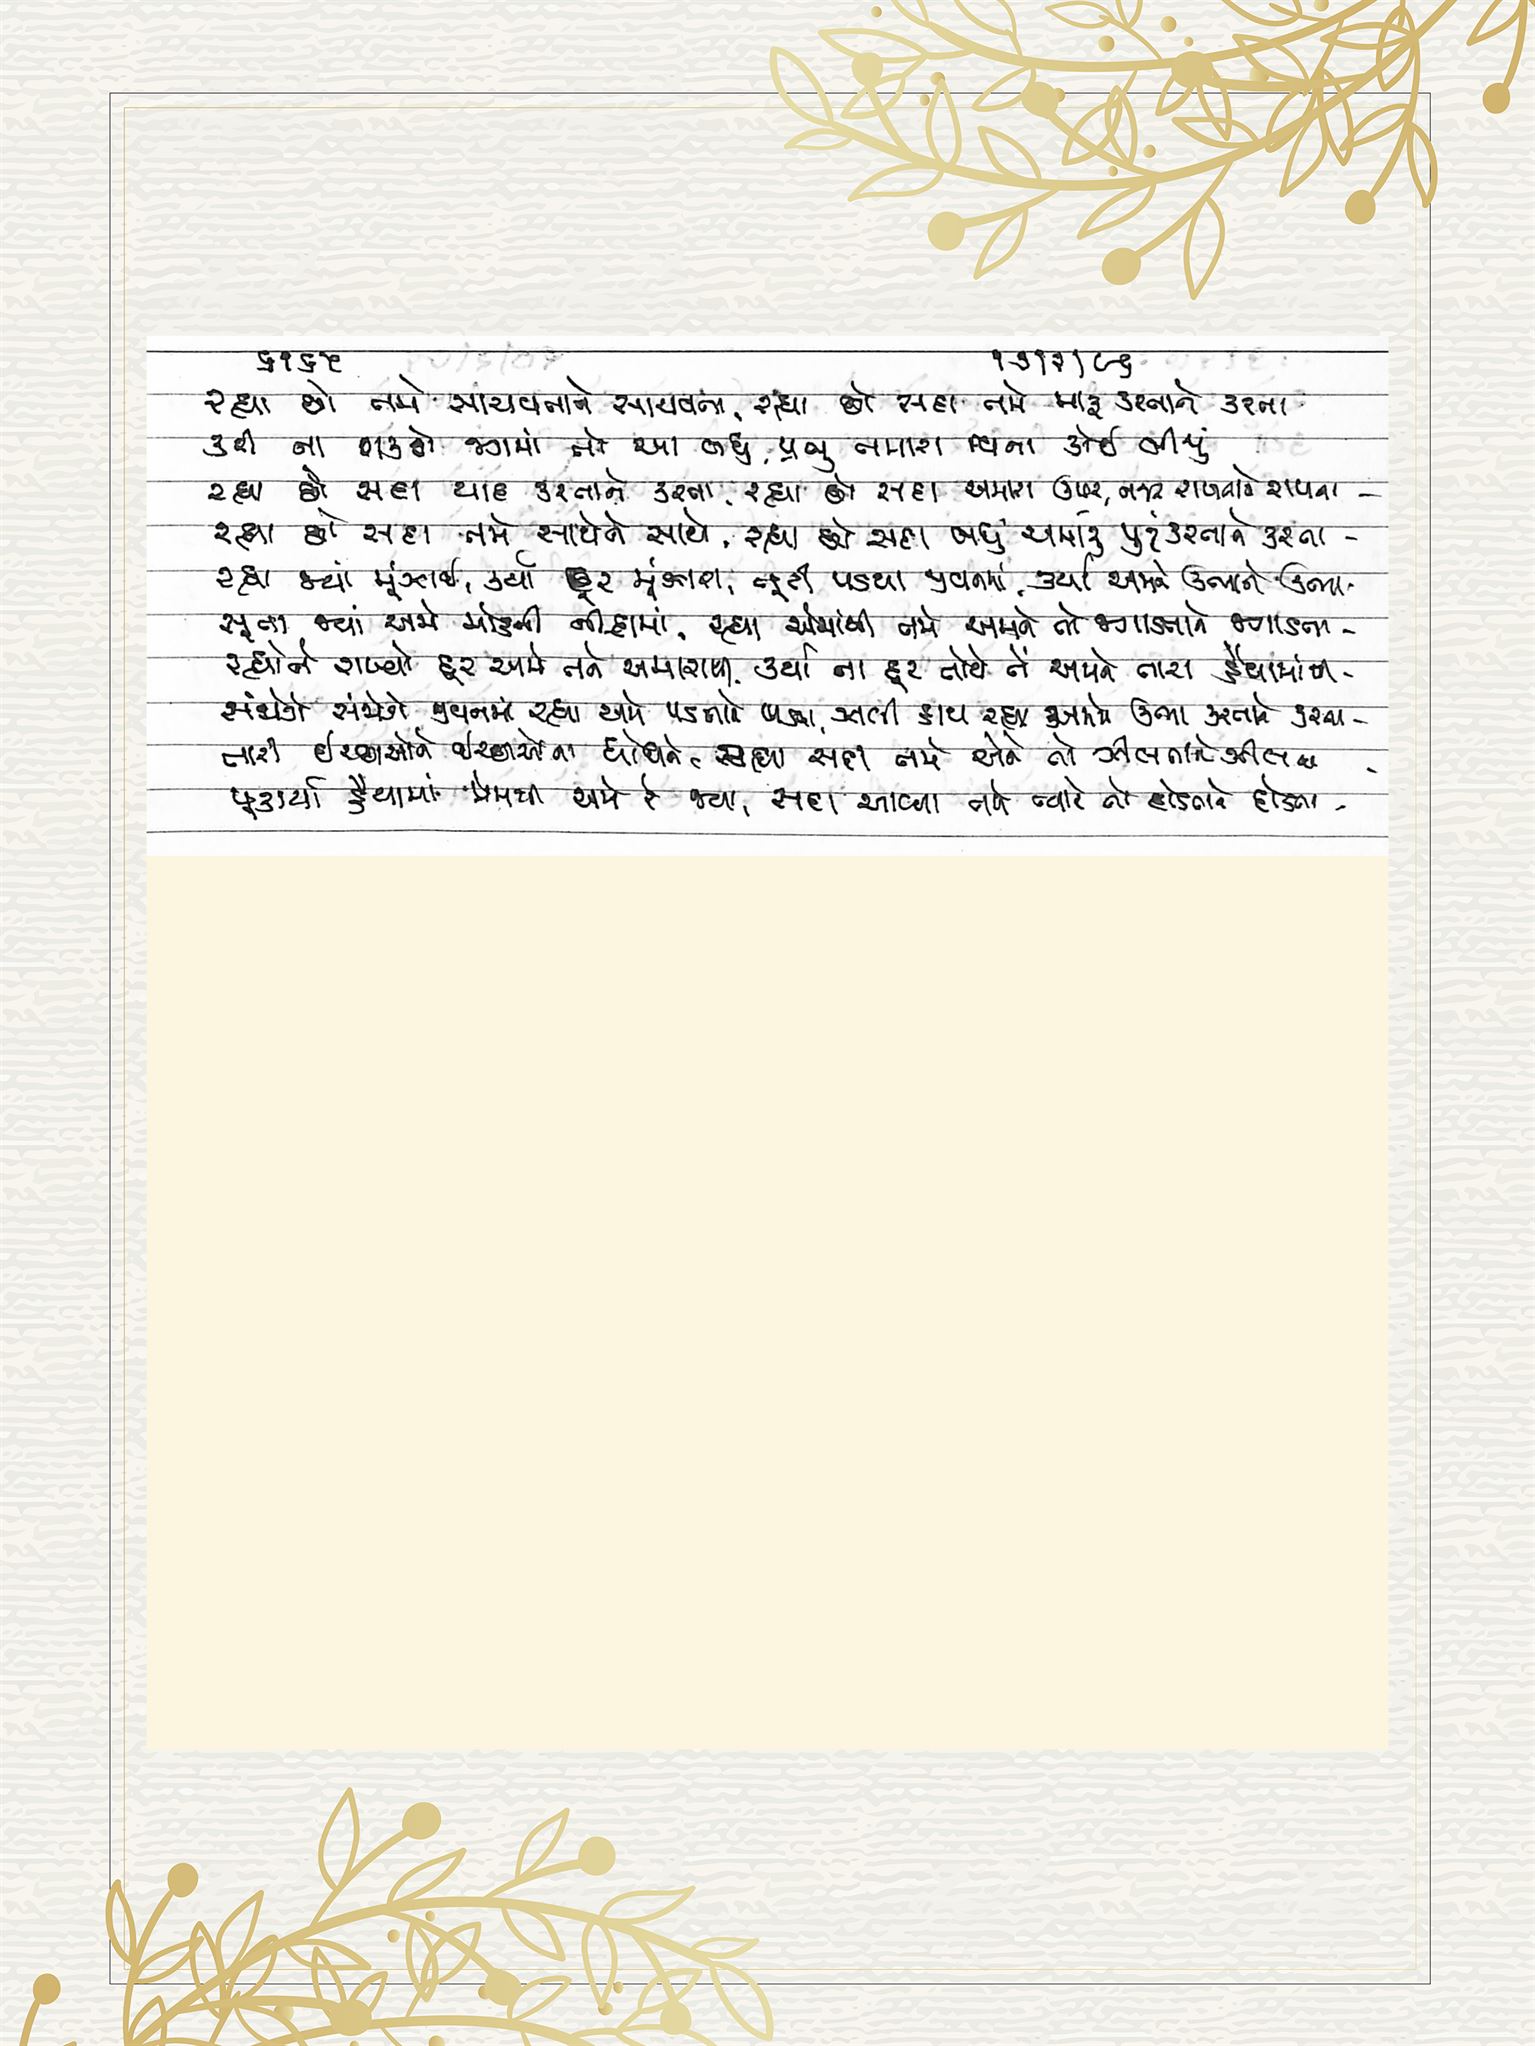 ૬૧૬૫ ૧૭|૩|૮૬
રહ્યા છો તમે સાચવતાને સાચવતા, રહ્યા છો સદા તમે મારૂ કરતાને કરતા
કરી ના શકશે જગમાં તો આ બધું, પ્રભુ તમારા વિના કોઈ બીજું
રહ્યા છો સદા યાદ કરતાને કરતા, રહ્યા છો સદા અમારા ઉપર, નજર રાખતાને રાખતા -
રહ્યા છો સદા તમે સાથેને સાથે, રહ્યા છો સદા બધું અમારું પુરું કરતાને કરતા -
રહ્યા જ્યાં મૂંઝાઈ, કર્યા દૂર મૂંઝારા, તૂટી પડયા જીવનમાં, કર્યા અમને ઉભાને ઉભા -
સૂતા જ્યાં અમે મોહની નીંદ્રામાં, રહ્યા એમાંથી તમે અમને તો જગાડતાને જગાડતા -
રહ્યોને રાખ્યો દૂર અમે તને અમારાથી, કર્યા ના દૂર તોયે તેં અમને તારા હૈયામાંથી -
સંજોગે સંજોગે જીવનમાં રહ્યા અમે પડતાને પડતા, ઝાલી હાથ રહ્યા અમને ઉભા કરતાને કરતા -
તારી ઈચ્છાઓને ઈચ્છાઓના ધોધને, રહ્યા સદા તમે એને તો ઝીલતાને ઝીલતા -
પૂકાર્યા હૈયામાં પ્રેમથી અમે રે જ્યાં, સદા આવ્યા તમે ત્યારે તો દોડતાને દોડતા -